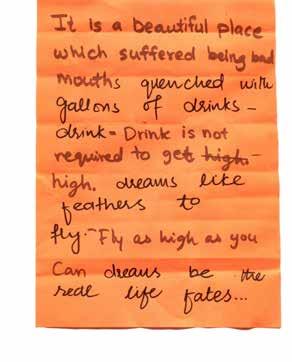 It is a beautiful place
which suffered being bad
mouths quenched with
gallons of drinks -
drink = Drink is not
required to get high -
high. dreams like
feathers to
fly. - Fly as high as you
Can dreams be the
real life fates...